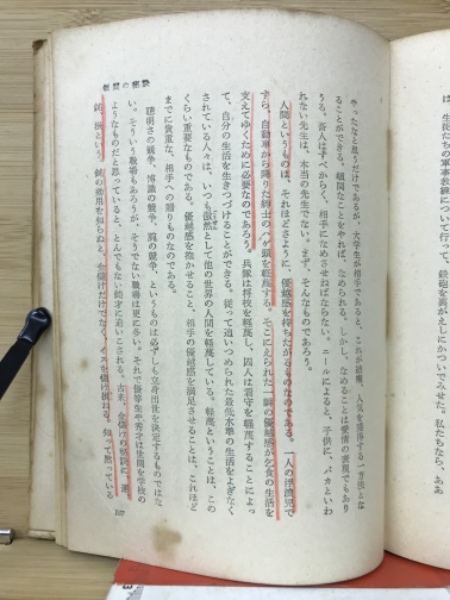 やったなと思うだけであるが、大学生が相手であると、これが結構、人気を獲得する一方法とな
ることができる。頓間なことをやれば、なめられる。しかし、なめることは愛情の表現でもあり
うる。吾人はすべからく、相手になめさせねばならない。ニールによると、子供に、バカといわ
れない先生は、本当の先生でない。まず、そんなものであろう。
人間というものは、それほどさように、優越感を持ちたがるものなのである。一人の浮浪児で
すら、自動車から降りた紳士のハゲ頭を軽蔑する。そこにえられた一瞬の優越感が乞食の生活を
支えてゆくために必要なのであろう。兵隊は将校を軽蔑し、囚人は看守を軽蔑することによっ
て、自分の生活を生きつづけることができる。従って追いつめられた最低水準の生活をよぎなく
されている人々は、いつも傲然として他の世界の人間を軽蔑している。軽蔑ということは、この
くらい重要なものである。優越感を抱かせること、相手の優越感を満足させることは、これほど
までに貴重な、相手への贈りものなのである。
聰明さの競争、博識の競争、腕の競争、というものは必ずしも立身出世を決定するものではな
い。そういう職場もあろうが、そうでない職場は更に多い。それで優等生や秀才は世間を学校の
ようなものだと思っていると、とんでもない鈍才に追いこされる。古来、金儲けの秘訣に、運、
鈍、根という。鈍の効用を知らぬと、金儲けだけでなく、イスも儲け損ねる。知って黙っている
107
は、生徒たちの軍事教練について行って、鉄砲を肩がえしにかついでみせた。私たちなら、ああ